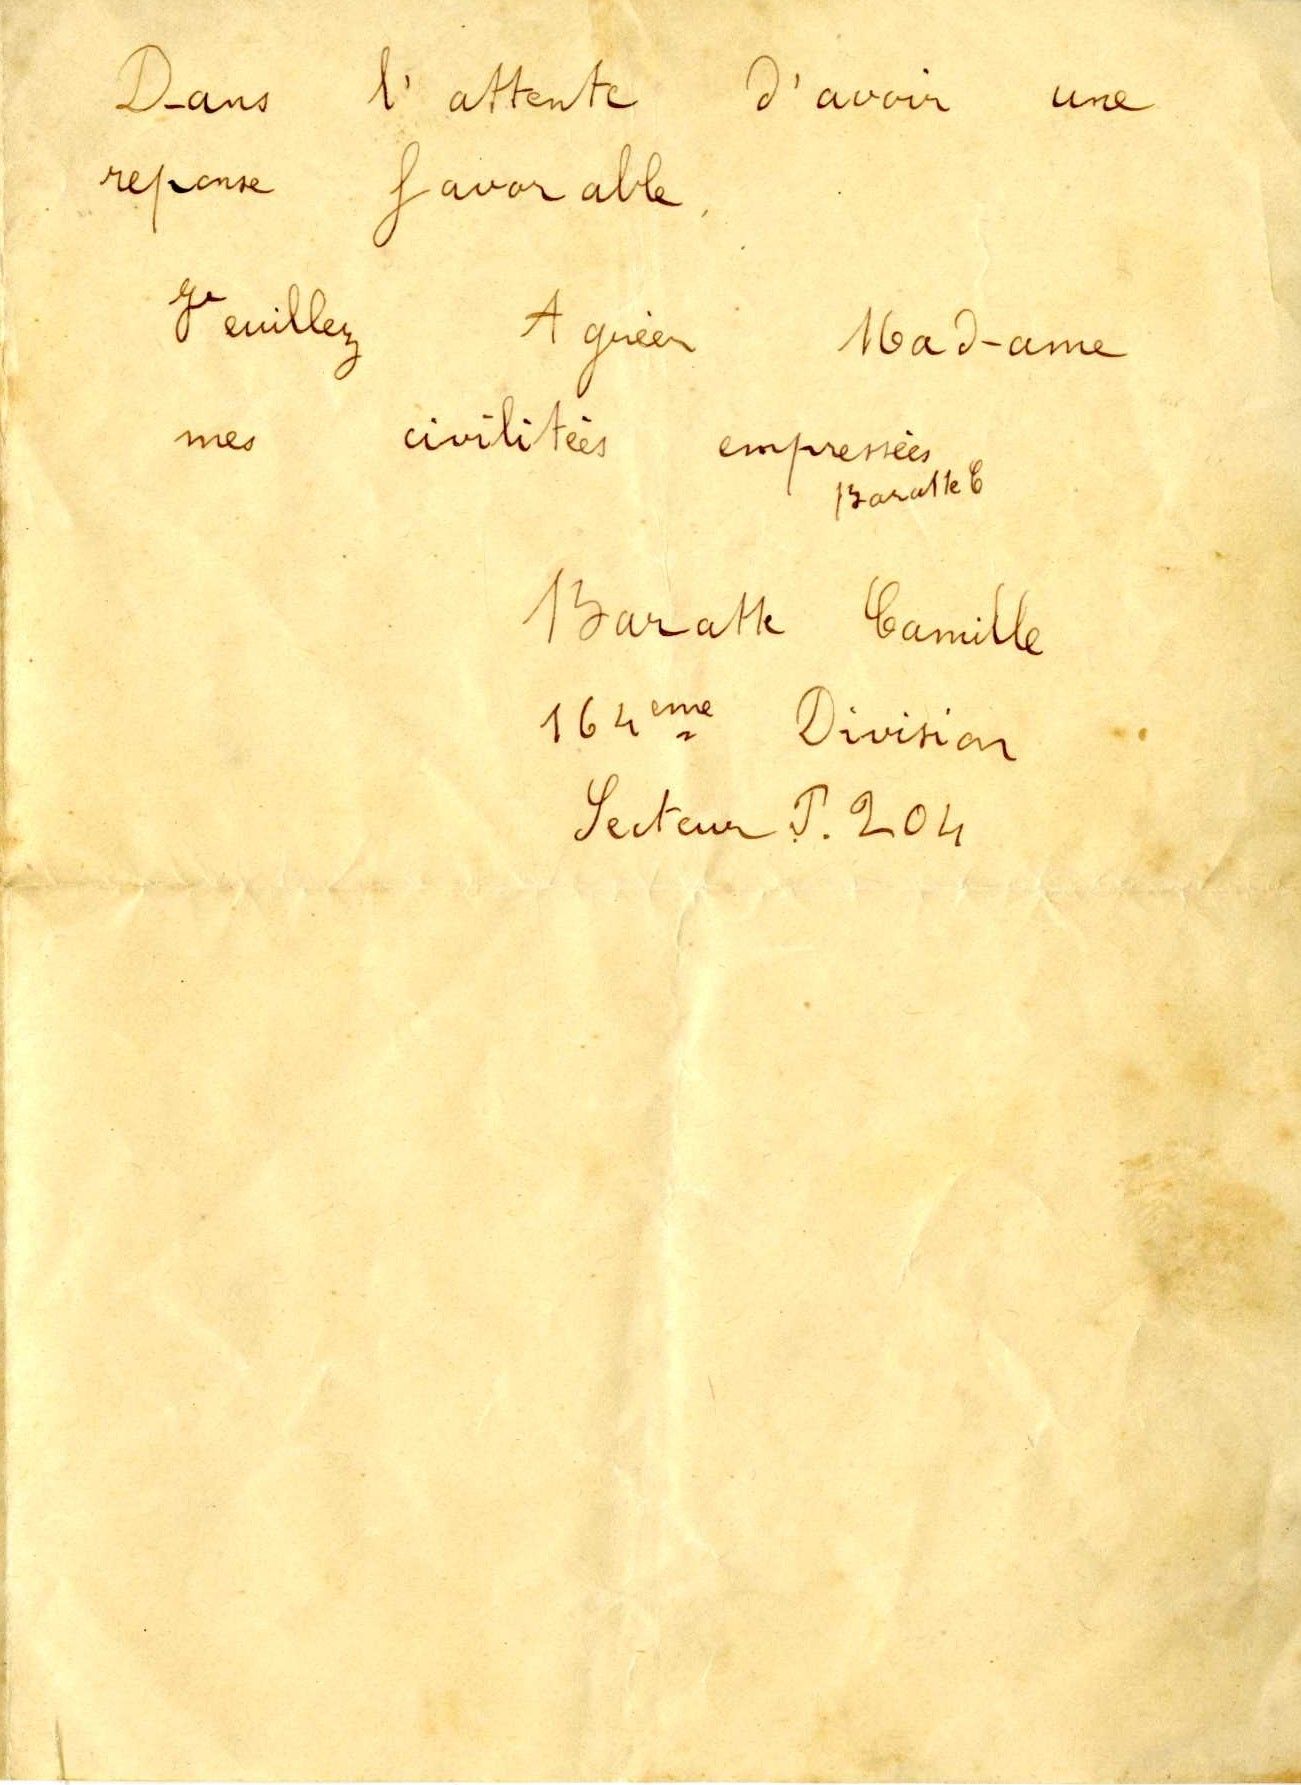 Dans l'attente d'avoir une
reponse favorable.
Veuillez Agréer Madame
mes civilitées empressées
Baratte C
Baratte Camille
164eme Division
Secteur P. 204